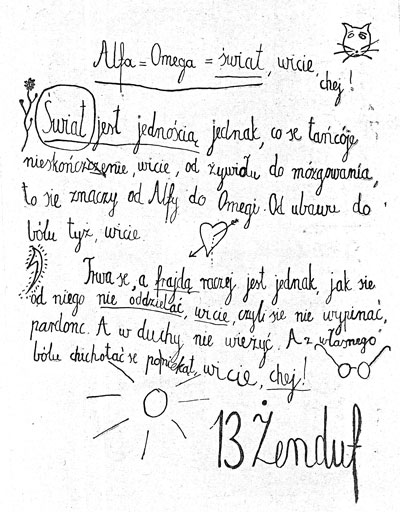 Alfa = Omega = świat, wicie,
chej!
Świat jest jednością jednak, co se tańcóje
nieskończenie, wicie, od żywiołu do mózgowania,
to się znaczy od Alfy do Omegi. Od ubawu do
bólu tyż, wicie.
Trwa se, a frajdą raczej jest jednak, jak sie
od niego nie oddzielać, wicie, czyli sie nie wypinać,
pardonc. A w duchy nie wierzyć. A z własnego
bólu chichotać se pomiekąt, wicie, chej!
13 Żenduf